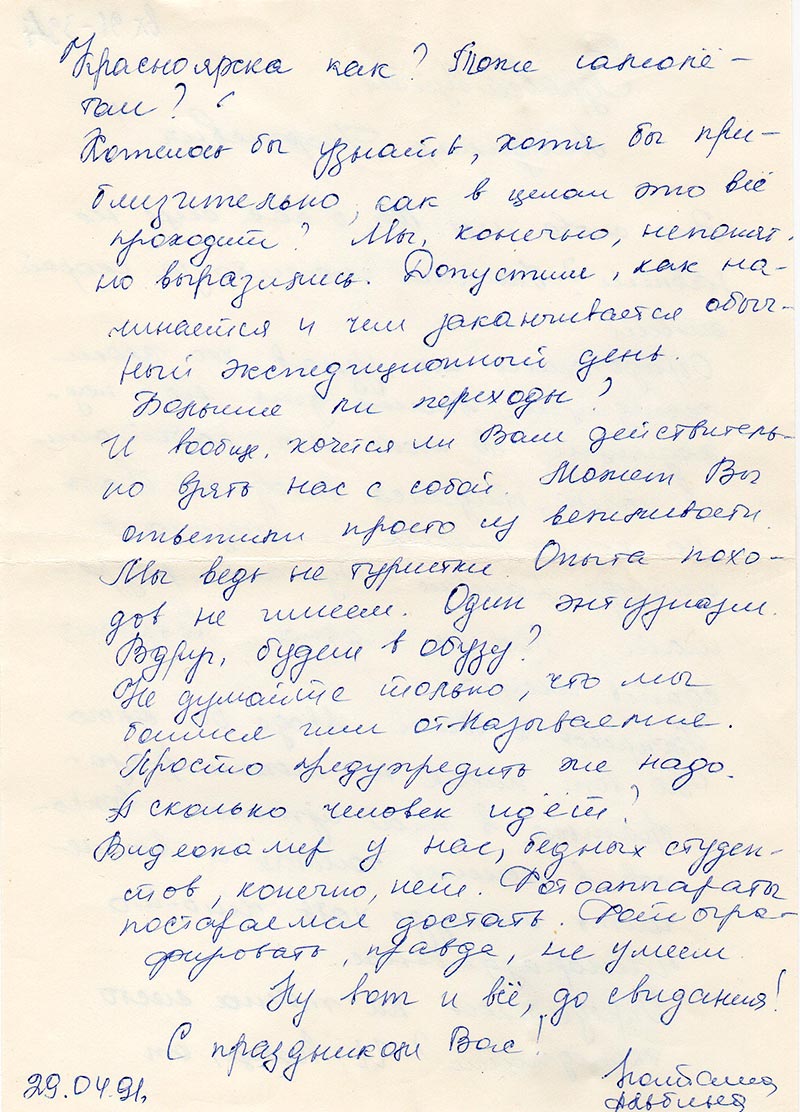 Красноярска как? Тоже самолё-
том?
Хотелось бы узнать, хотя бы при-
близительно, как в целом это всё
проходит? Мы, конечно, непонят-
но выразились. Допустим, как на-
чинается и чем заканчивается обыч-
ный экспедиционный день.
Большие ли переходы?
И вообще, хочется ли Вам действитель-
но взять нас с собой. Может Вы
ответили просто из вежливости.
Мы ведь не туристки. Опыта похо-
дов не имеем. Один энтузиазм.
Вдруг, будем в обузу?
Не думайте только, что мы
боимся или отказываемся.
Просто предупредить же надо.
А сколько человек идёт?
Видеокамер у нас, бедных студен-
тов, конечно, нет. Фотоаппараты
постараемся достать. Фотогра-
фировать, правда, не умеем.
Ну вот и всё, до свидания!
С праздником Вас!
29.04.91.
Наташа
Альбина